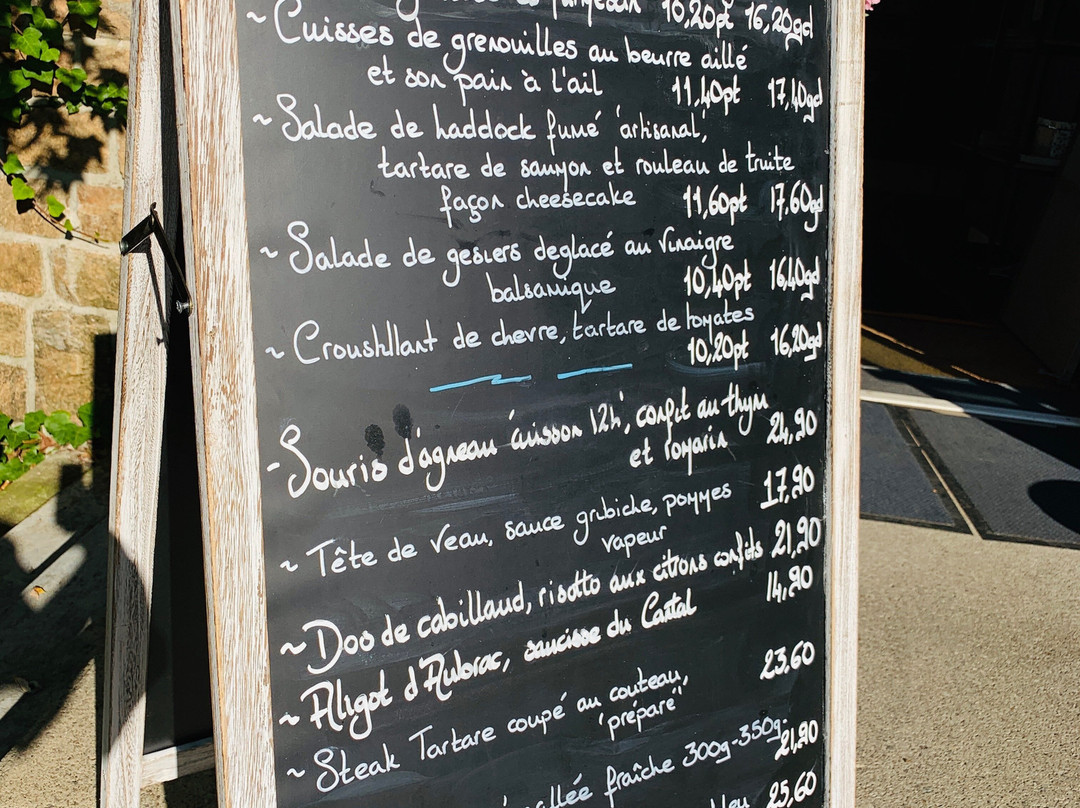 parmesan 10,20pt 16,20gd
~ Cuisses de grenouilles au beurre aillé
et son pain à l'ail 11,40pt 17,40gd
~ Salade de haddock fumé 'artisanal',
tartare de saumon et rouleau de truite
façon cheesecake 11,60pt 17,60gd
~ Salade de gesiers deglacé au vinaigre
balsamique 10,40pt 16,40gd
~ Croustillant de chevre, tartare de tomates
10,20pt 16,20gd
- Souris d'agneau 'cuisson 12h', confit au thym
et romarin 24,90
~ Tête de veau, sauce gribiche, pommes 17,90
vapeur
~ Dos de cabillaud, risotto aux citrons confits 21,90
~ Aligot d'Aubrac, saucisse du Cantal 14,90
~ Steak Tartare coupé au couteau, 23,60
'préparé'
fraîche 300g-350g. 21,90
bleu 25,60